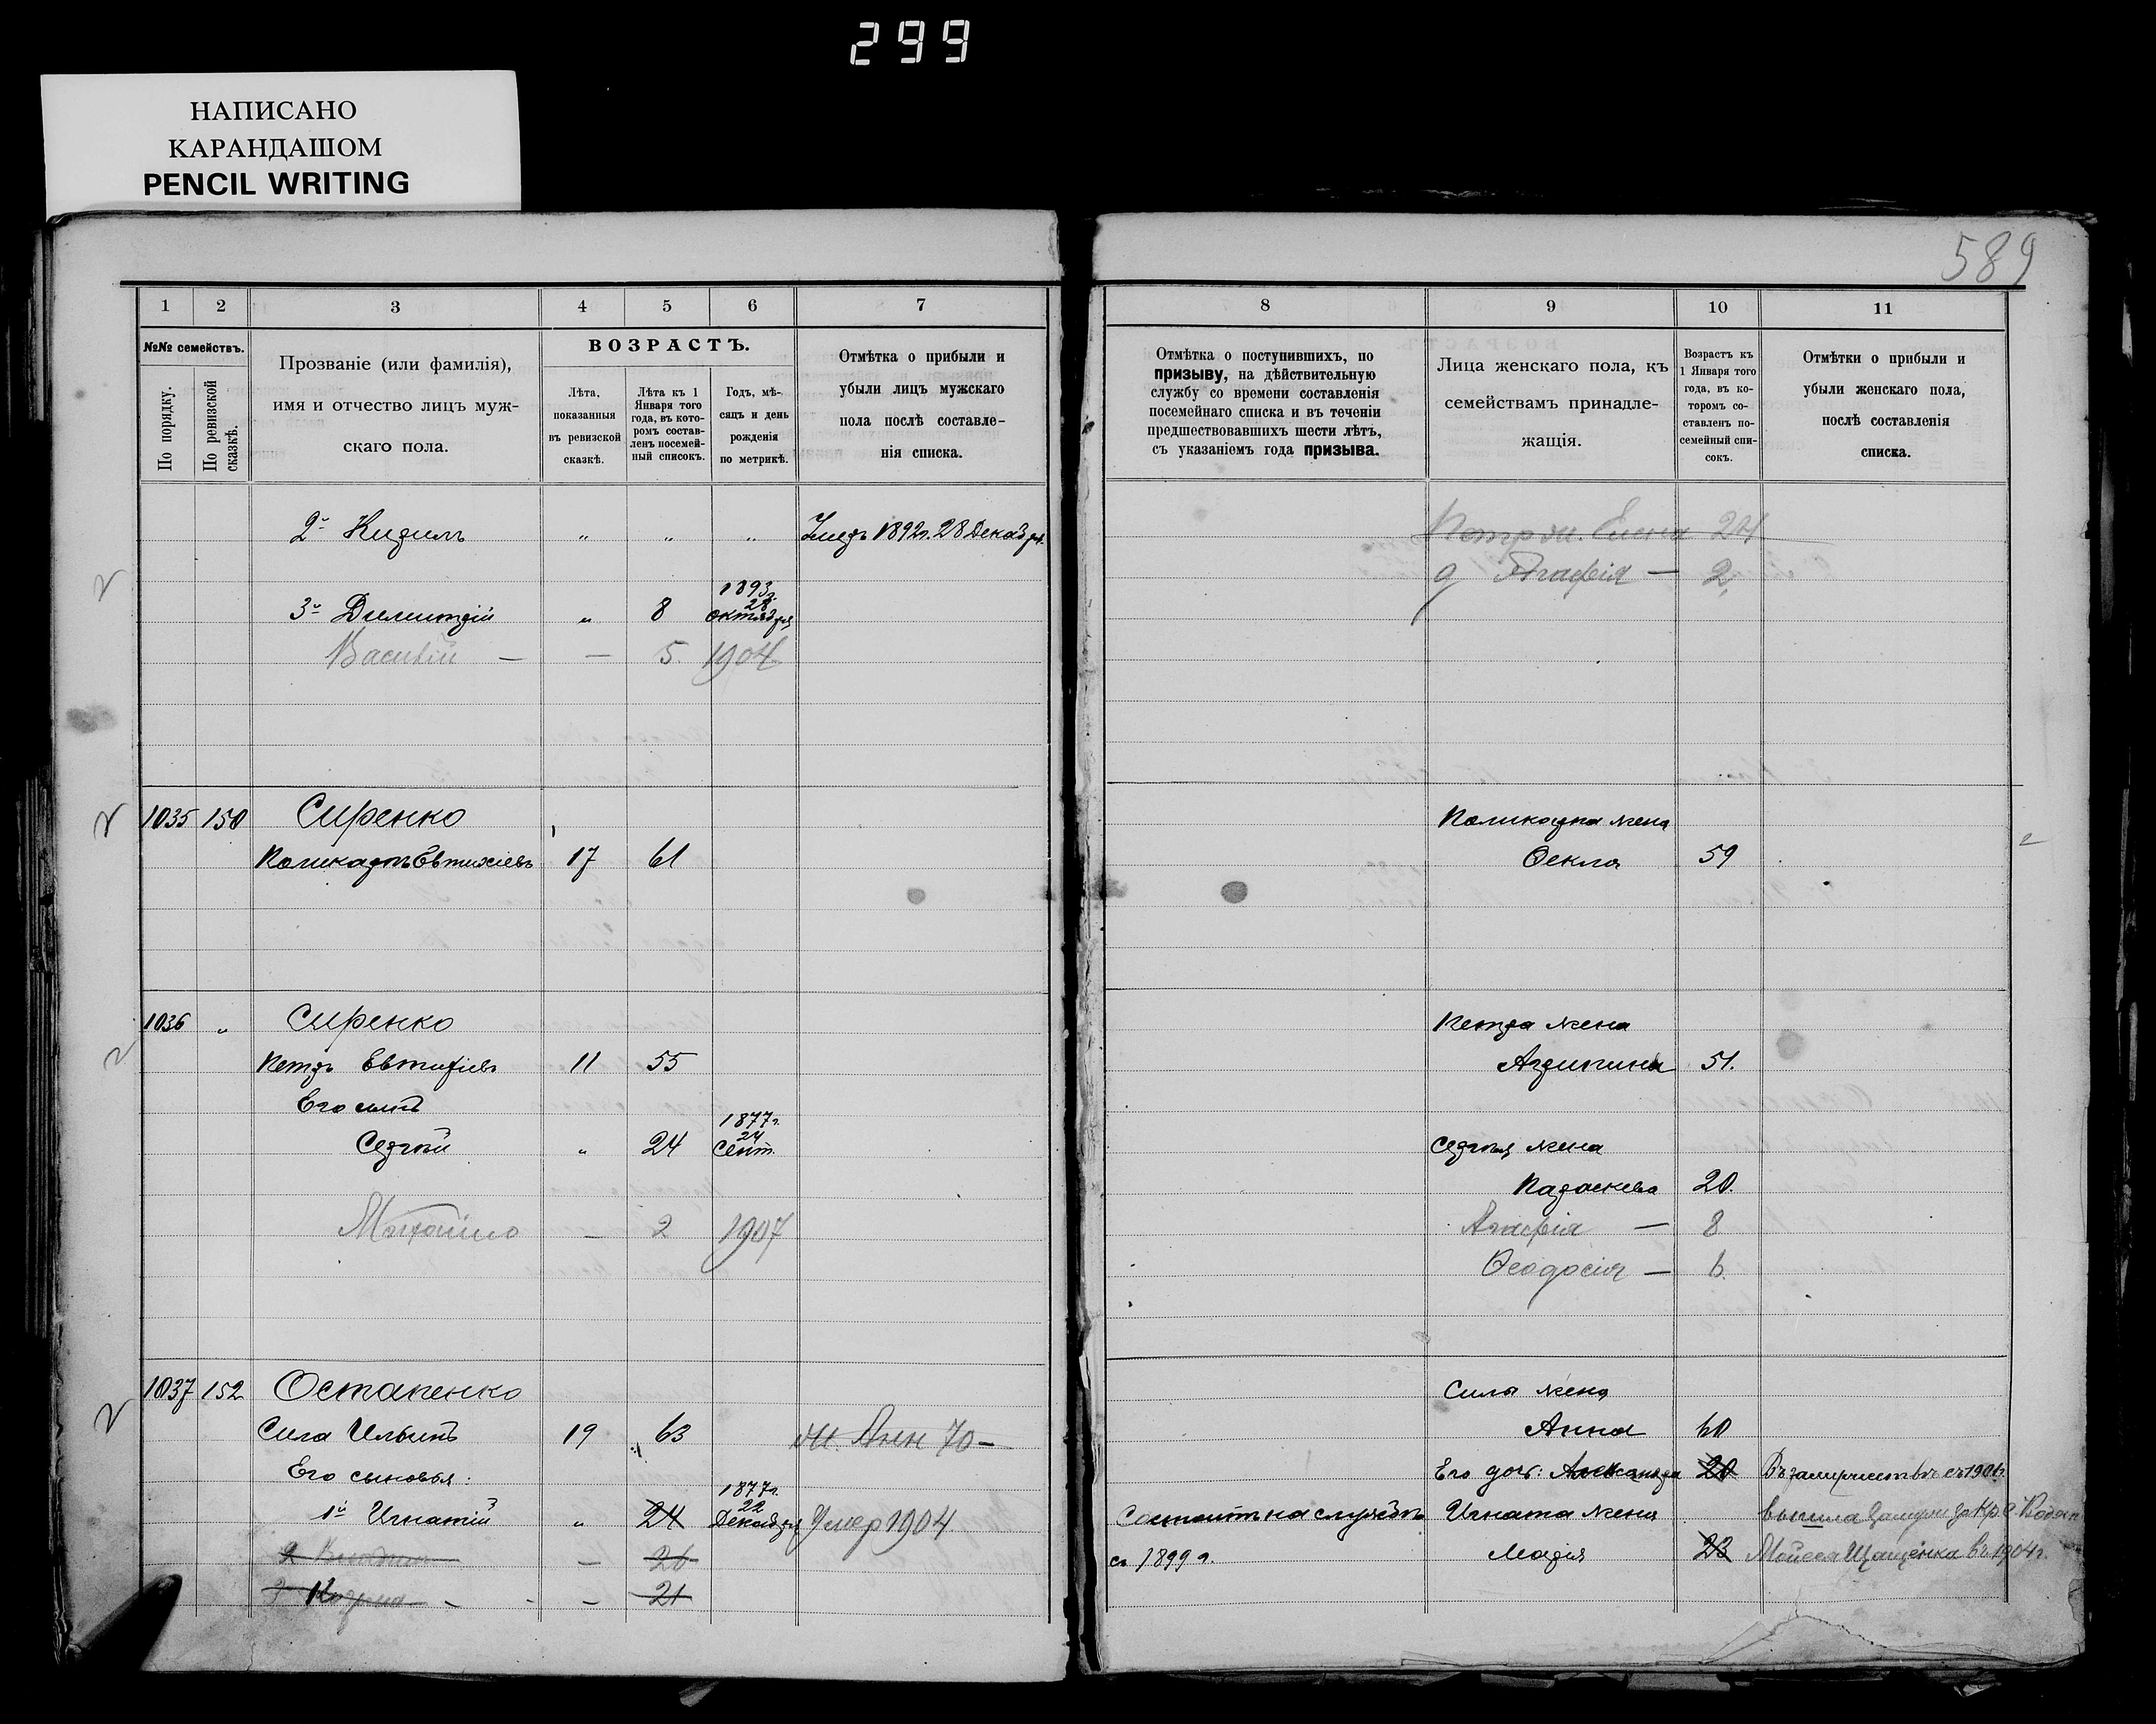 299
НАПИСАНО
КАРАНДАШОМ
PENCIL WRITING
589
1 2 3 4 5 6 7
№№ семействъ.
По порядку.
По ревизской сказкѣ.
Прозваніе (или фамилія),
имя и отчество лицъ муж-
скаго пола.
ВОЗРАСТЪ.
Лѣта,
показанныя
въ ревизской
сказкѣ.
Лѣта къ 1
Января того
года, въ кото-
ромъ состав-
ленъ посемей-
ный списокъ.
Годъ, мѣ-
сяцъ и день
рожденія
по метрикѣ.
Отмѣтка о прибыли и
убыли лицъ мужскаго
пола послѣ составле-
нія списка.
2й Кирилъ " " " Умеръ 1892г. 28 Декабря.
1893г.
28
3й Димитрій " 8 октября
Василій — — 5. 1904
1035 150 Сиренко
Поликарпъ Евтихіевъ 17 61
1036 " Сиренко
Петръ Евтихіевъ 11 55
Его сынъ
1877г.
24
Сергѣй " 24 Сент.
— 2 1907
1037 152 Остапенко
Сила Ильинъ 19 63 70 —
Его сыновья:
1877г.
22
1й Игнатій " 24 Декабря Умер 1904
2 — 26
3 Козьма — — 21
8 9 10 11
Отмѣтка о поступившихъ, по
призыву, на дѣйствительную
службу со времени составленія
посемейнаго списка и въ теченіи
предшествовавшихъ шести лѣтъ,
съ указаніемъ года призыва.
Лица женскаго пола, къ
семействамъ принадле-
жащія.
Возрастъ къ
1 Января того
года, въ ко-
торомъ со-
ставленъ по-
семейный спи-
сокъ.
Отмѣтки о прибыли и
убыли женскаго пола,
послѣ составленія
списка.
Елена 24
д Агафія — 2
Поликарпа жена
Ѳекла 59
Петра жена
Агрипина 51.
Сергѣя жена
Параскева 20.
Агафія — 8
Ѳеодосія — 6.
Силы жена
Анна 60
Его доч: Александра 20 Въ замужествѣ съ 1901г.
Состоитъ на службѣ Игната жена вышла замуж за Кр. с.
съ 1899г. Марія 23 Моисея въ 1904г.